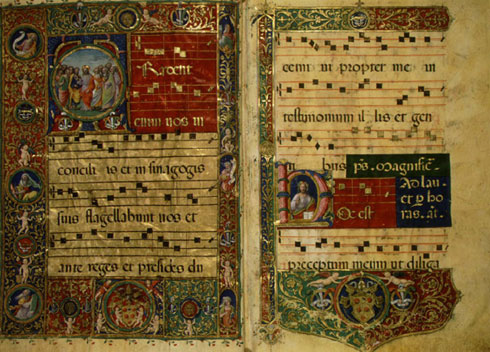 TRadent
enim vos in
concili is et in sinagogis
suis flagellabunt vos et
ante reges et presides du
cemini propter me in
testimonium il lis et gen
ti bus ps. Magnific̄.
Ad lau
et p ho
HOc est ras. an̄.
preceptum meum ut diliga